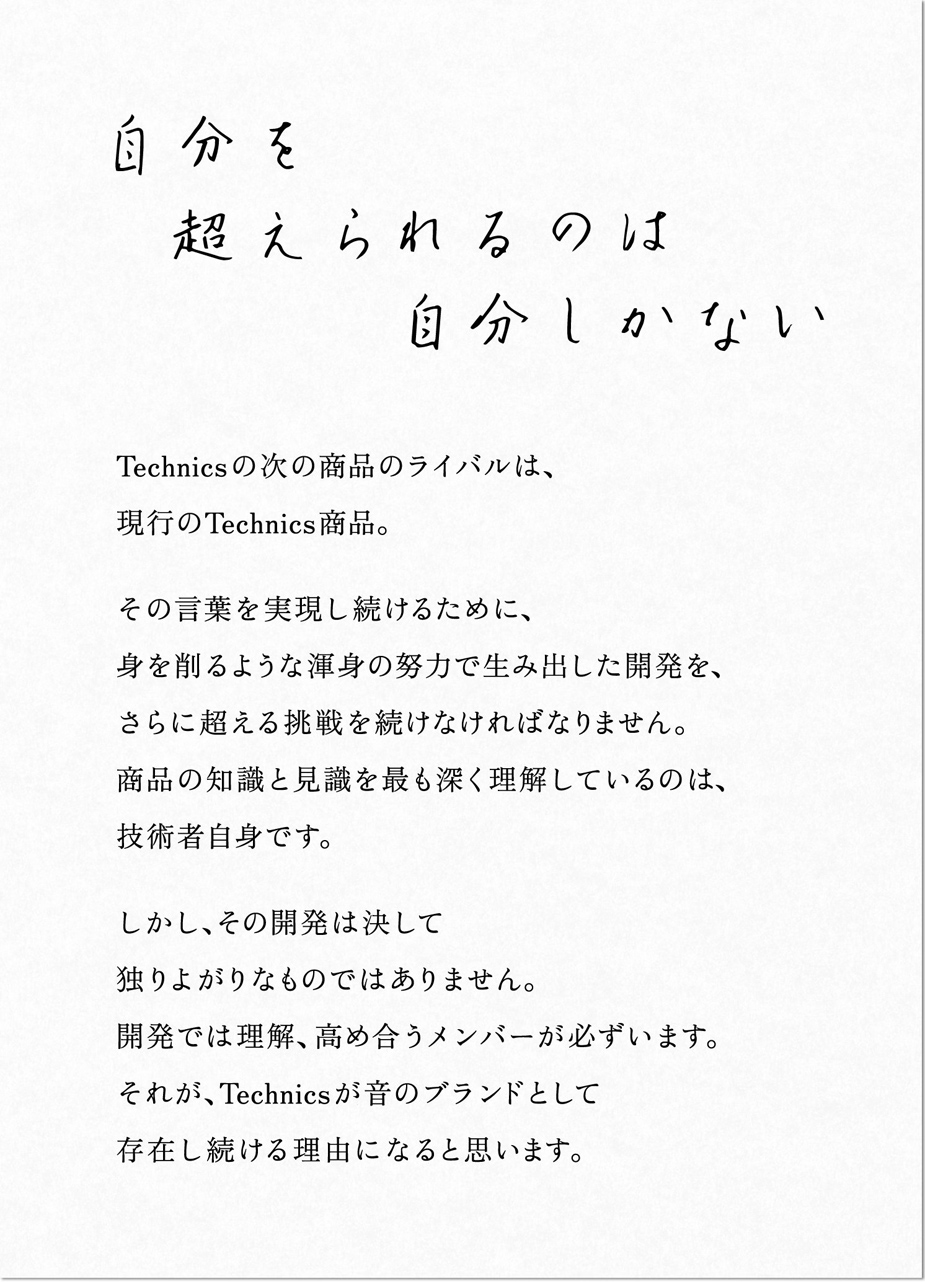 自分を
超えられるのは
自分しかない
Technicsの次の商品のライバルは、
現行のTechnics商品。
その言葉を実現し続けるために、
身を削るような渾身の努力で生み出した開発を、
さらに超える挑戦を続けなければなりません。
商品の知識と見識を最も深く理解しているのは、
技術者自身です。
しかし、その開発は決して
独りよがりなものではありません。
開発では理解、高め合うメンバーが必ずいます。
それが、Technicsが音のブランドとして
存在し続ける理由になると思います。